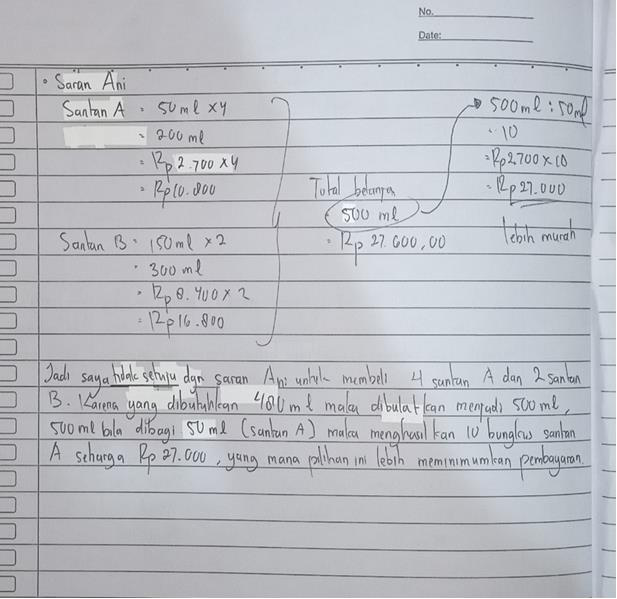 No.
Date:
• Saran Ani
Santan A = 50 ml x 4
= 200 ml
= Rp 2.700 x 4
= Rp 10.800
Santan B = 150 ml x 2
= 300 ml
= Rp 8.400 x 2
= Rp 16.800
Total belanja
= 500 ml
= Rp 27.600,00
500 ml : 50 ml
= 10
= Rp 2.700 x 10
= Rp 27.000
lebih murah
Jadi saya tidak setuju dgn saran Ani untuk membeli 4 santan A dan 2 santan
B. Karena yang dibutuhkan 480 ml maka dibulatkan menjadi 500 ml,
500 ml bila dibagi 50 ml (santan A) maka menghasilkan 10 bungkus santan
A seharga Rp 27.000, yang mana pilihan ini lebih meminimumkan pembayaran.